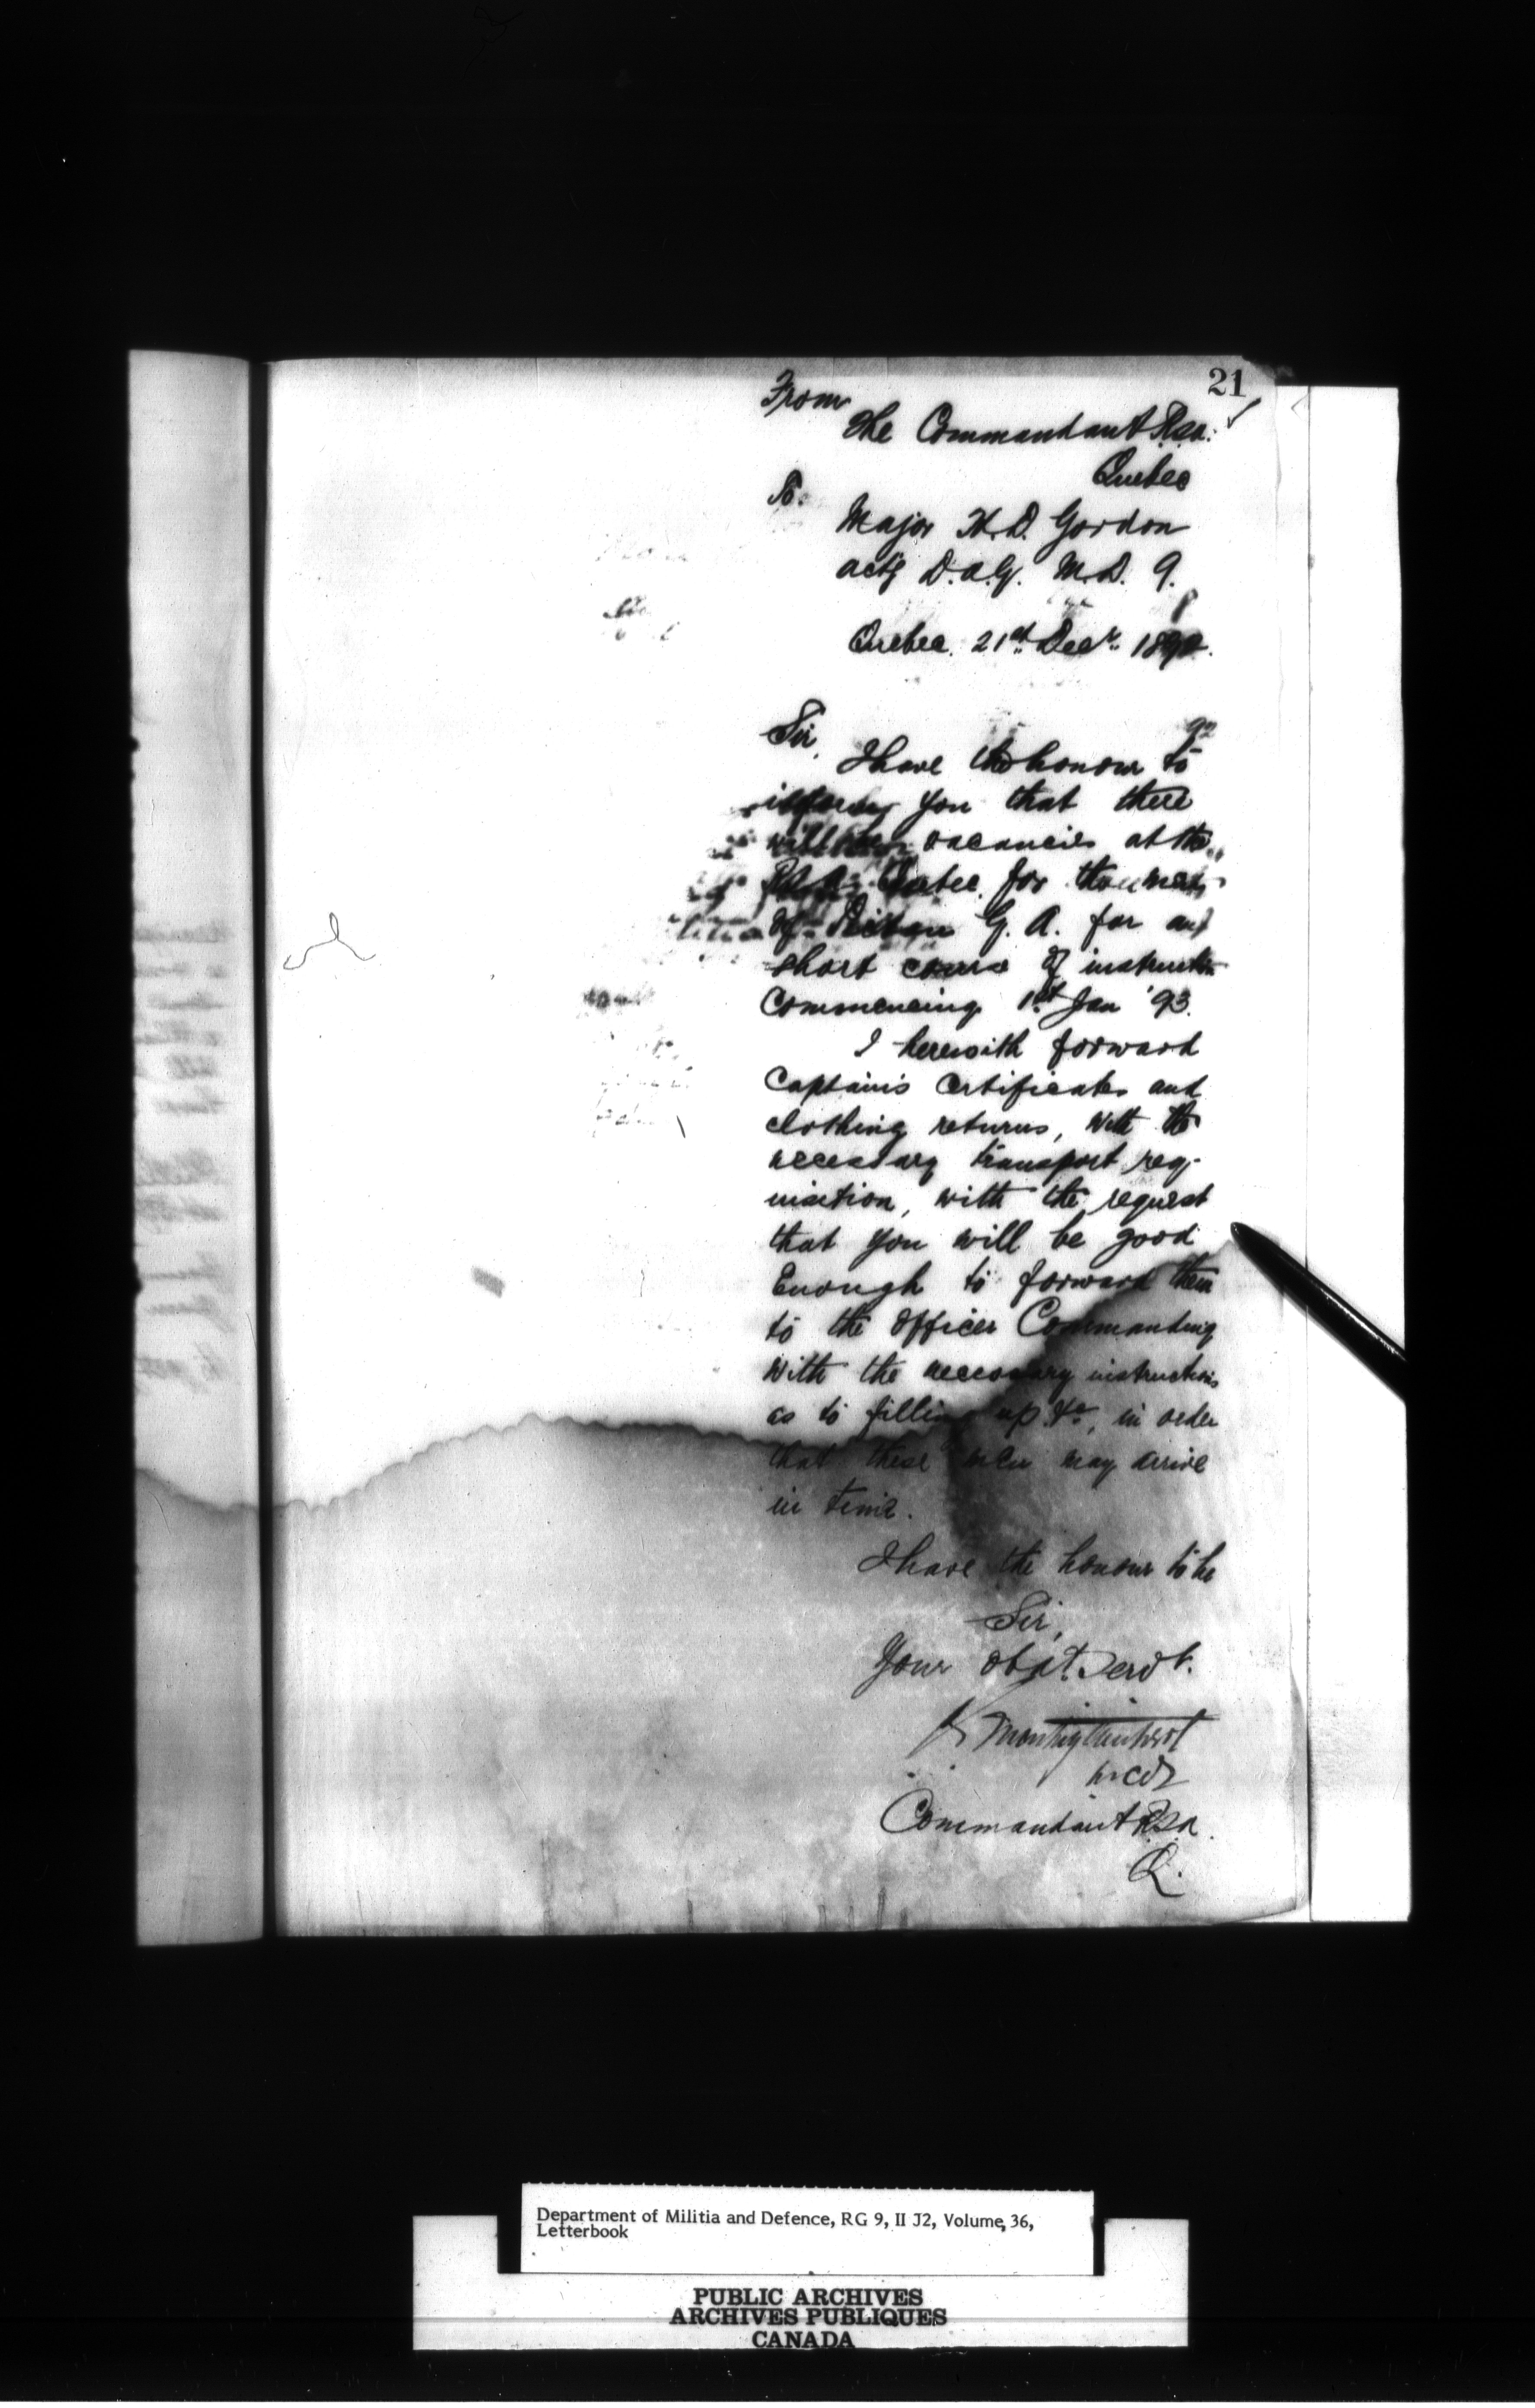 21
From
The Commandant R.S.A.
Quebec
To.
Major H.D. Gordon
actg D.A.G. M.D. 9.
Quebec. 21st Decr. 189
92
Sir,
I have the honour to
inform you that there
will be vacancies at the
Quebec for the men
of Pictou G. A. for a
short course of instruction
Commencing 1st Jan '93.
I herewith forward
Captain's Certificates and
clothing returns, with the
necessary transport req-
uisition, with the request
that you will be good
Enough to forward them
to the Officer Commanding
with the necessary instructions
as to filling up &c, in order
that these men may arrive
in time.
I have the honour to be
Sir,
Your obdt. Servt.
Commandant R.S.A.
Q.
Department of Militia and Defence, RG 9, II J2, Volume, 36,
Letterbook
PUBLIC ARCHIVES
ARCHIVES PUBLIQUES
CANADA